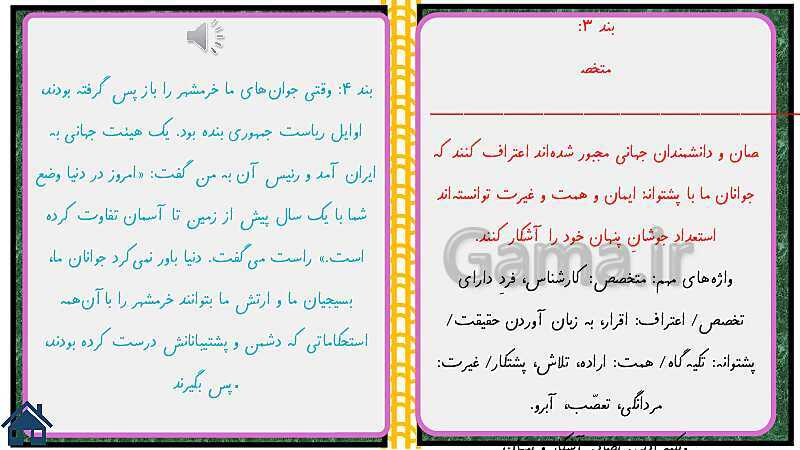 بند ۳:
متخصـ
صان و دانشمندان جهانی مجبور شده‌اند اعتراف کنند که
جوانان ما با پشتوانهٔ ایمان و همت و غیرت توانسته‌اند
استعداد جوشانِ پنهان خود را آشکار کنند.
واژه‌های مهم: متخصص: کارشناس، فردِ دارای
تخصص/ اعتراف: اقرار، به زبان آوردن حقیقت/
پشتوانه: تکیه‌گاه/ همت: اراده، تلاش، پشتکار/ غیرت:
مردانگی، تعصّب، آبرو.
بند ۴: وقتی جوان‌های ما خرمشهر را باز پس گرفته بودند،
اوایل ریاست جمهوری بنده بود. یک هیئت جهانی به
ایران آمد و رئیس آن به من گفت: «امروز در دنیا وضع
شما با یک سال پیش از زمین تا آسمان تفاوت کرده
است.» راست می‌گفت. دنیا باور نمی‌کرد جوانان ما،
بسیجیان ما و ارتش ما بتوانند خرمشهر را با آن‌همه
استحکاماتی که دشمن و پشتیبانانش درست کرده بودند،
پس بگیرند.
Gama.ir